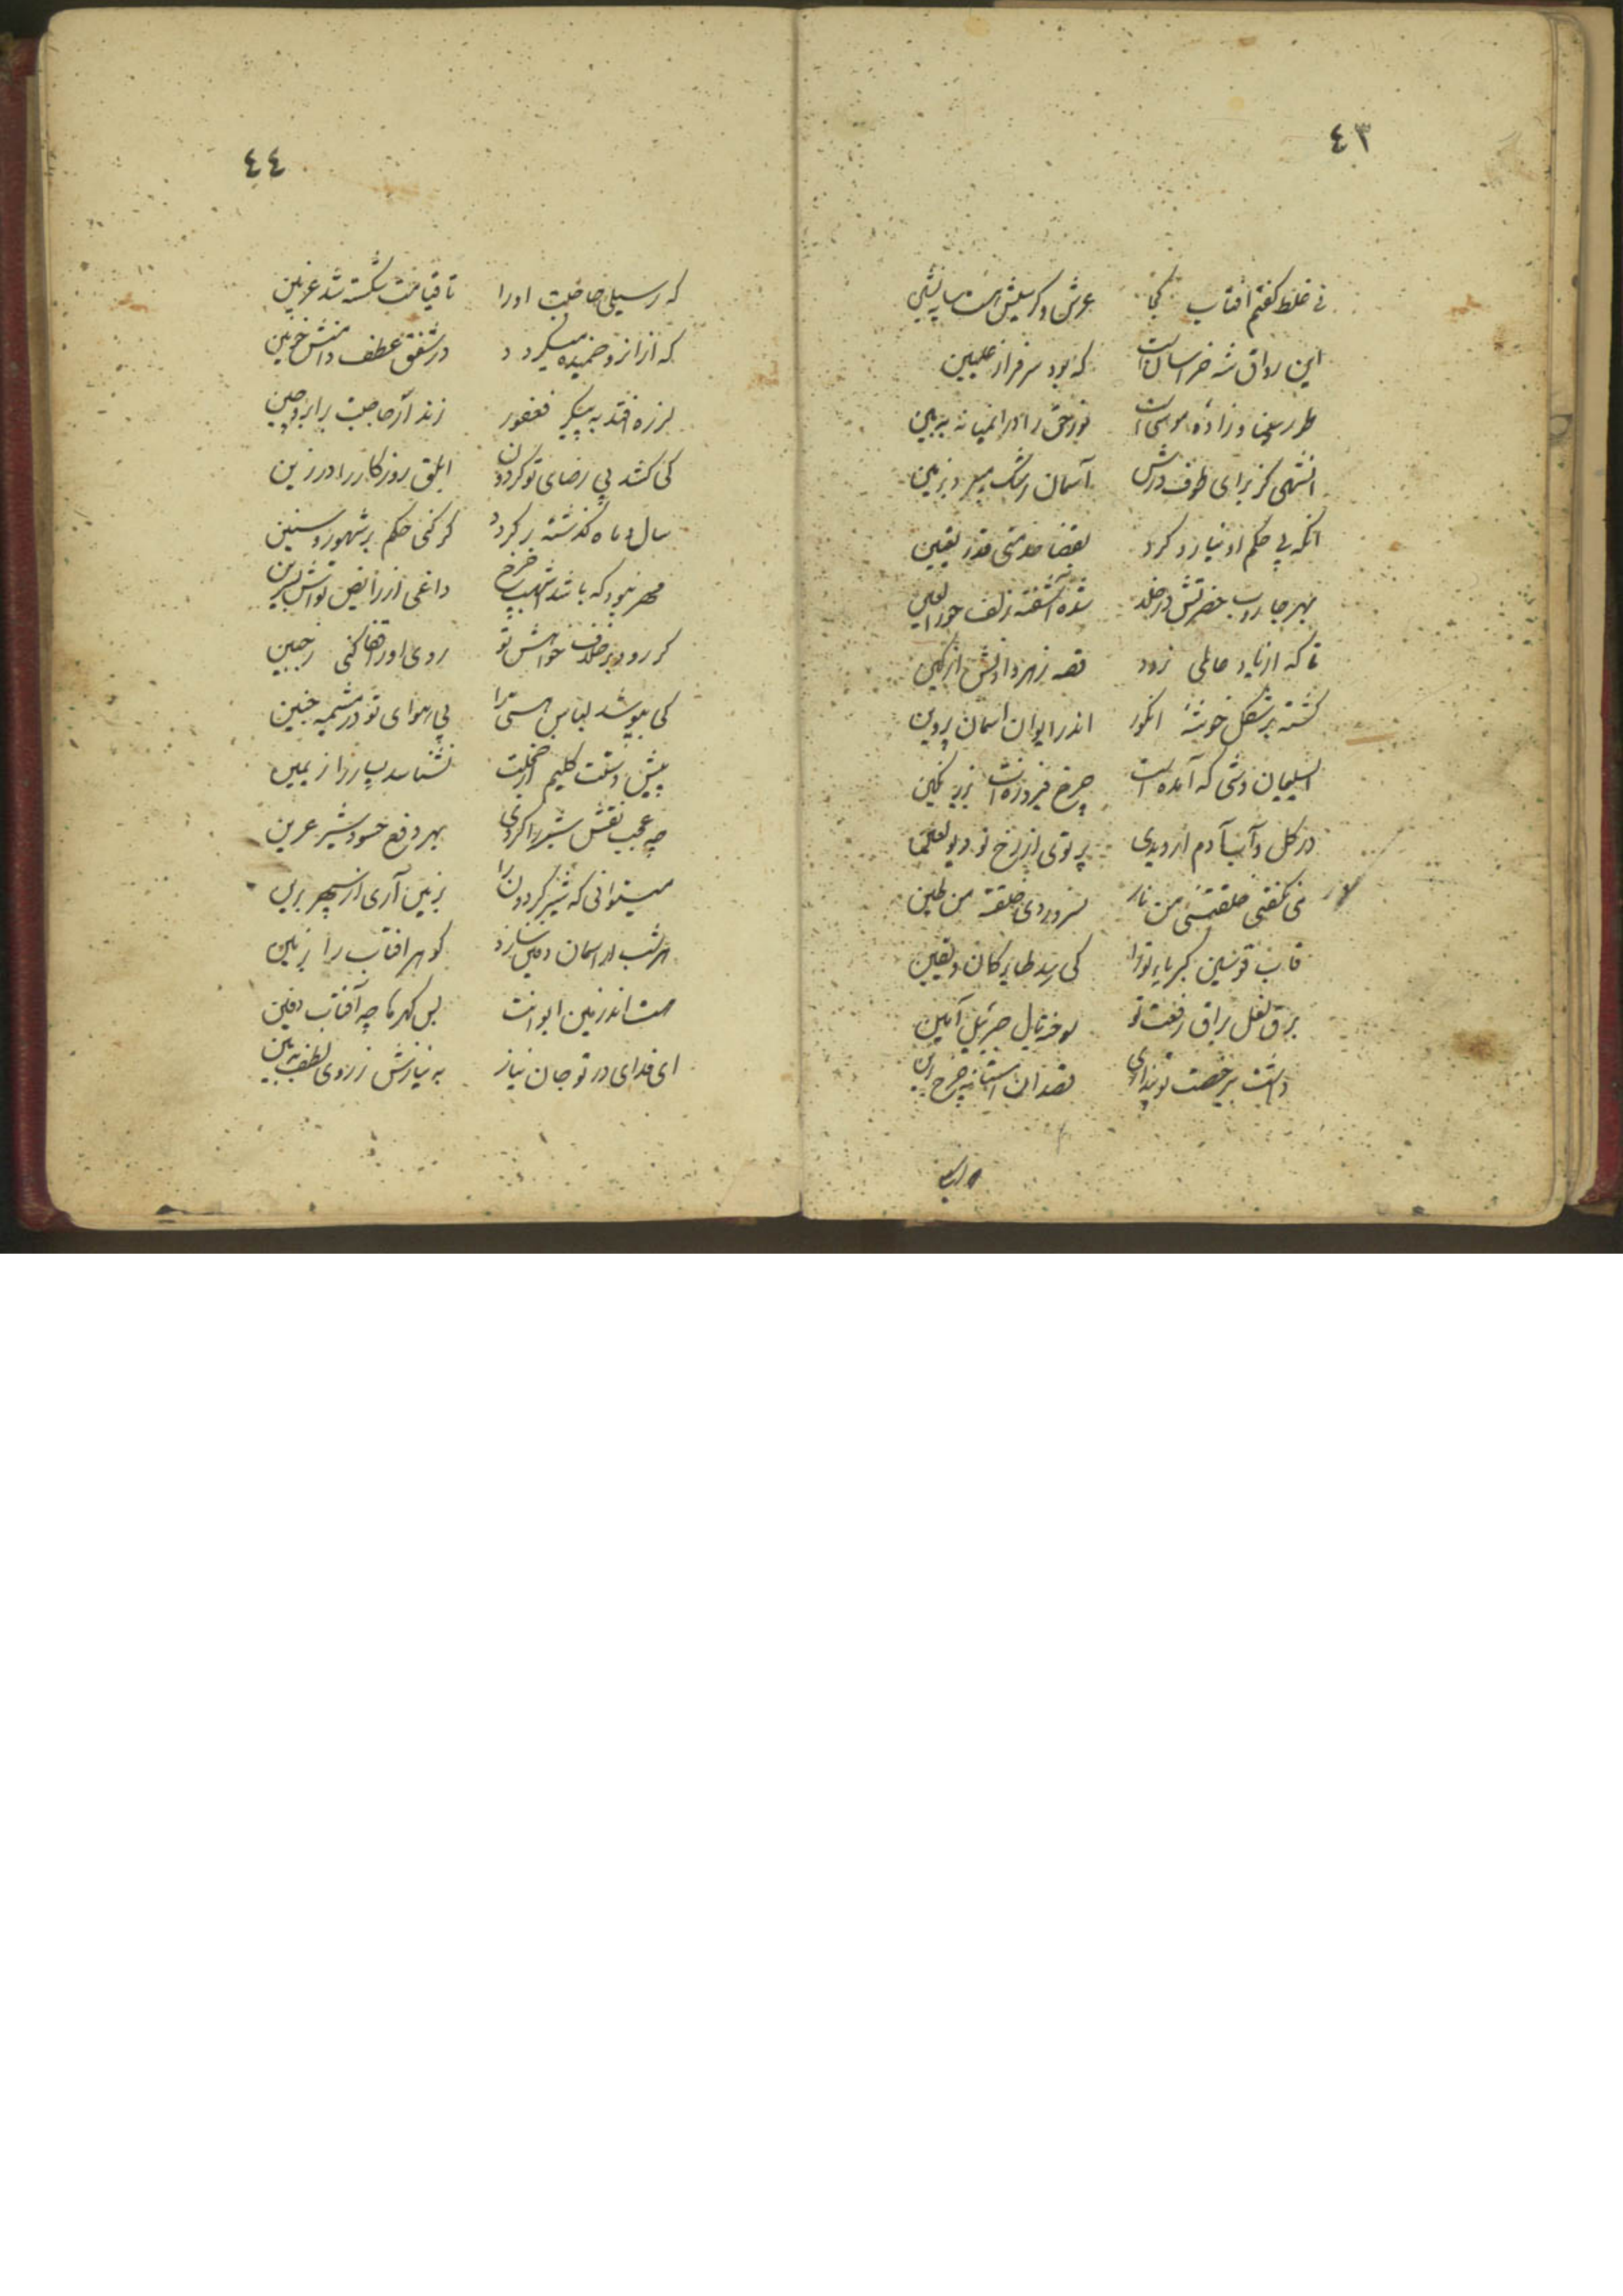 ٤٣
نی غلط گفتم آفتاب کجا عرش و کرسیش است سایه نشین
این رواق شه خراسان است که بود سرفراز علیین
طور سینا و زاده موسی است نور حق را در انمیانه ببین
انشهی کز برای طوف درش آسمان رشک میبرد بزمین
آنکه بی حکم او نیارد کرد بقضا خدمتی قدر تعیین
بهر جاروب حضرتش در خلد شده آشفته زلف حورالعین
تا که از یاد حاملی نرود قصه زهر دادنش از کین
گشته بر شکل خوشه انگور اندر ایوان آسمان پروین
ای سلیمان وشی که آمده است چرخ فیروزه ات بزیر نگین
در گل و آب آدم ار دیدی پرتوی از رخ تو دیو لعین
می نگفتی خلقتنی من نار نسرودی خلقته من طین
قاب قوسین کبریای تو را کی رسد طایر گمان و یقین
برق نعل براق رفعت تو سوخته بال جبرئیل امین
داشت بی رخصت تو پنداری قصد این آستانه چرخ برین
٤٤
که ز سیلی حاجبت او را تا قیامت شکسته شد عرنین
که از انرو خمیده میگردد در شفق عطف دامنش خونین
لرزه افتد به پیکر فغفور زند ار حاجبت برابرو چین
کی کشد بی رضای تو گردون ابلق روزگار را در زین
سال و ماه گذشته برگردد گر کنی حکم بر شهور و سنین
مهر نبود که باشد اشهب چرخ داغی از رایض تواش بسرین
گر رود بر خلاف خواهش تو روی او را قضا کنی ز جبین
کی بپوشد لباس هستی را بی هوای تو در مشیمه جنین
پیش دستت کلیم از خجلت نشناسد یسار را ز یمین
چه عجب نقش شیر را کردی بهر دفع حسود شیر عرین
میتوانی که شیر گردون را بزمین آری از سپهر برین
هر شب ار آسمان دفین سازد گوهر آفتاب را بزمین
هست اندر زمین ایوانت بس گهرها چه آفتاب دفین
ای فدای در تو جان نیاز به نیازش ز روی لطف ببین